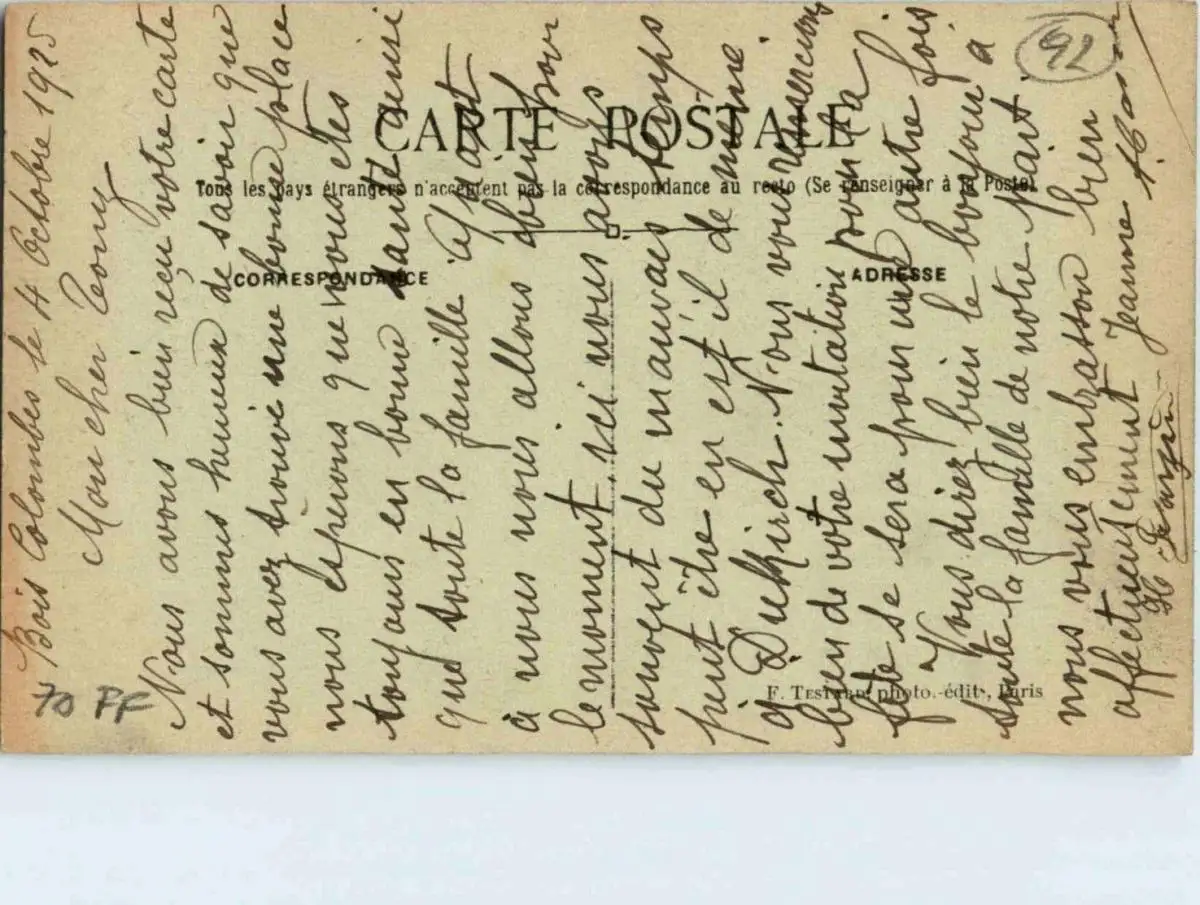 CARTE POSTALE
Tous les pays étrangers n'acceptent pas la correspondance au recto (Se renseigner à la Poste)
CORRESPONDANCE
ADRESSE
F. TESTARD, photo.-édit., Paris
92
70 FF
Bois Colombes le 4 Octobre 1925
Mon cher Tony
Nous avons bien reçu votre carte
et sommes heureux de savoir que
vous avez trouvé une bonne place
nous esperons que vous êtes
toujours en bonne santé ainsi
que toute la famille
à nous nous allons bien pour
le momment, ici nous avons
souvent du mauvais temps
peut être en est il de même
a Dukirch. Nous vous remercions
bien de votre invitation pour la
fête se sera pour une autre fois
Vous direz bien le bonjour à
toute la famille de notre part
nous vous embrasson bien
affectueusement Jeanne